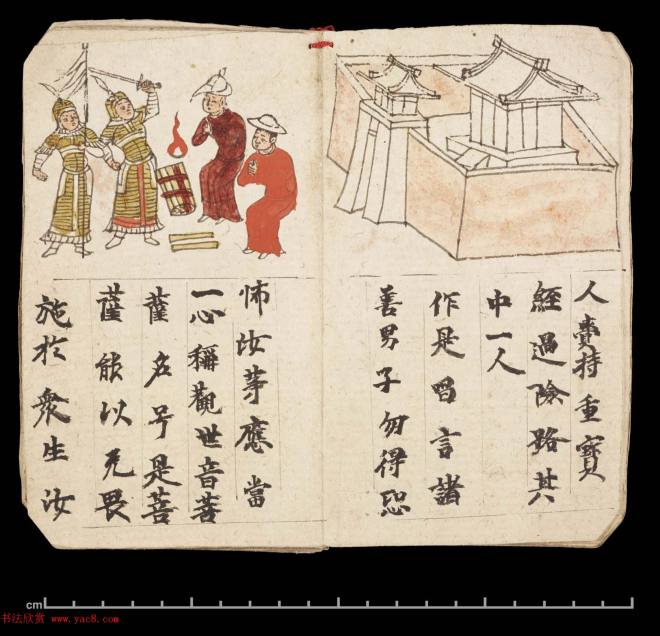 人賷持重寶
經過險路其
中一人
作是唱言諸
善男子勿得恐
怖汝等應當
一心稱觀世音菩
薩名号是菩
薩能以无畏
施於衆生汝
cm
书法欣赏 www.yac8.com